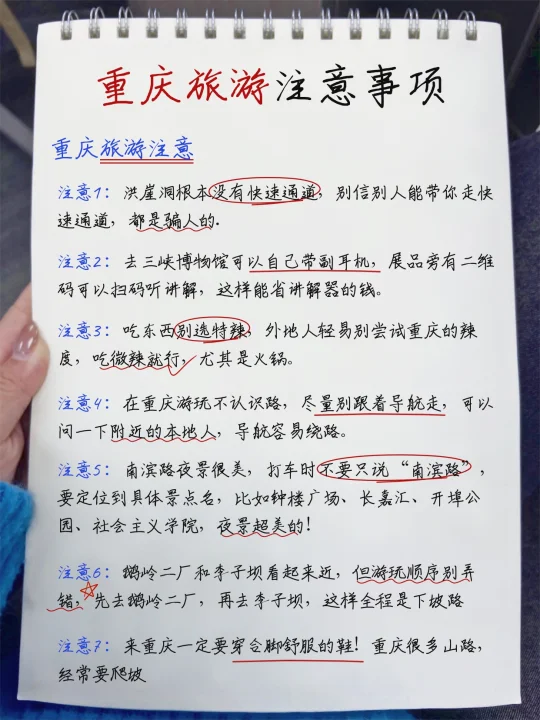 重庆旅游注意事项
重庆旅游注意
注意1：洪崖洞根本没有快速通道，别信别人能带你走快
速通道，都是骗人的.
注意2：去三峡博物馆可以自己带副耳机，展品旁有二维
码可以扫码听讲解，这样能省讲解器的钱。
注意3：吃东西别选特辣，外地人轻易别尝试重庆的辣
度，吃微辣就行，尤其是火锅。
注意4：在重庆游玩不认识路，尽量别跟着导航走，可以
问一下附近的本地人，导航容易绕路。
注意5：南滨路夜景很美，打车时不要只说“南滨路”，
要定位到具体景点名，比如钟楼广场、长嘉汇、开埠公
园、社会主义学院，夜景超美的!
注意6：鹅岭二厂和李子坝看起来近，但游玩顺序别弄
错，先去鹅岭二厂，再去李子坝，这样全程是下坡路
注意7：来重庆一定要穿合脚舒服的鞋! 重庆很多山路，
经常要爬坡